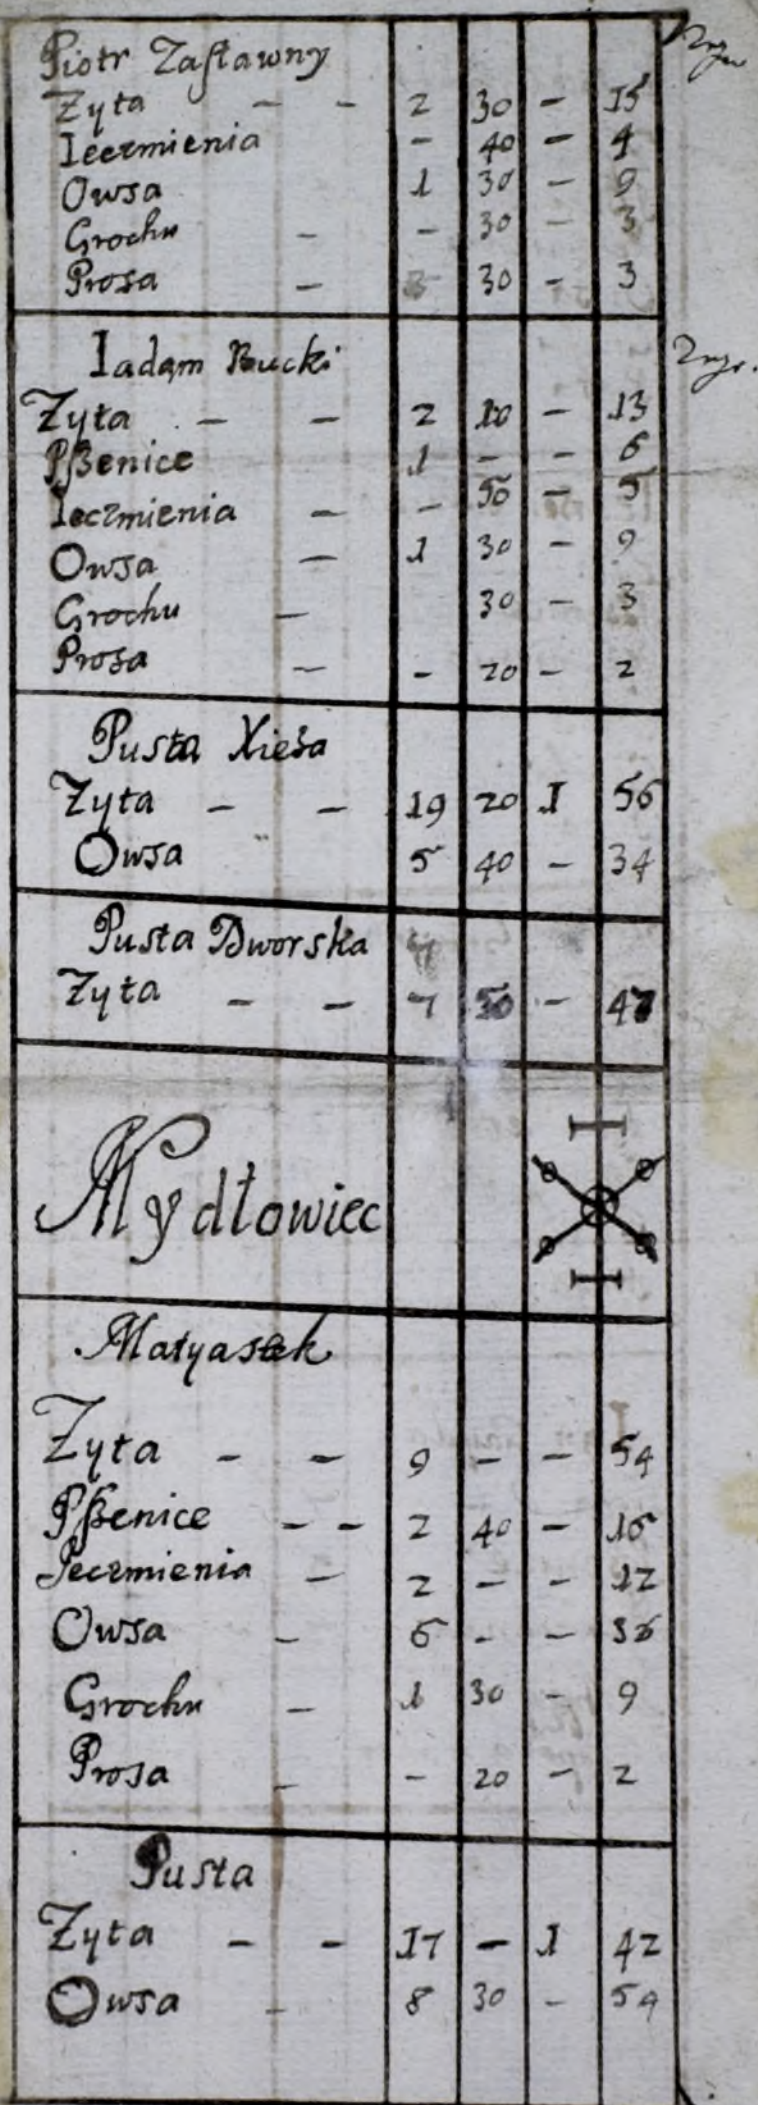 Piotr Zasławny
Zyta - - 2 30 - 15
Ieczmienia - 40 - 4
Owsa 1 30 - 9
Grochu - - 30 - 3
Prosa - 30 - 3
Iadam Bucki
Zyta - - 2 10 - 13
Pſzenice 1 - - 6
Ieczmienia - - 50 - 5
Owsa - 1 30 - 9
Grochu - 30 - 3
Prosa - - 20 - 2
Pusta Xieża
Zyta - - 19 20 1 56
Owsa 5 40 - 34
Pusta Dworska
Zyta - - 7 50 - 47
Mydłowiec
Matyasek
Zyta - - 9 - - 54
Pſzenice - - 2 40 - 16
Jeczmienia - 2 - - 12
Owsa - 6 - - 36
Grochu - 1 30 - 9
Prosa - - 20 - 2
Pusta
Zyta - - 17 - 1 42
Owsa - 8 30 -